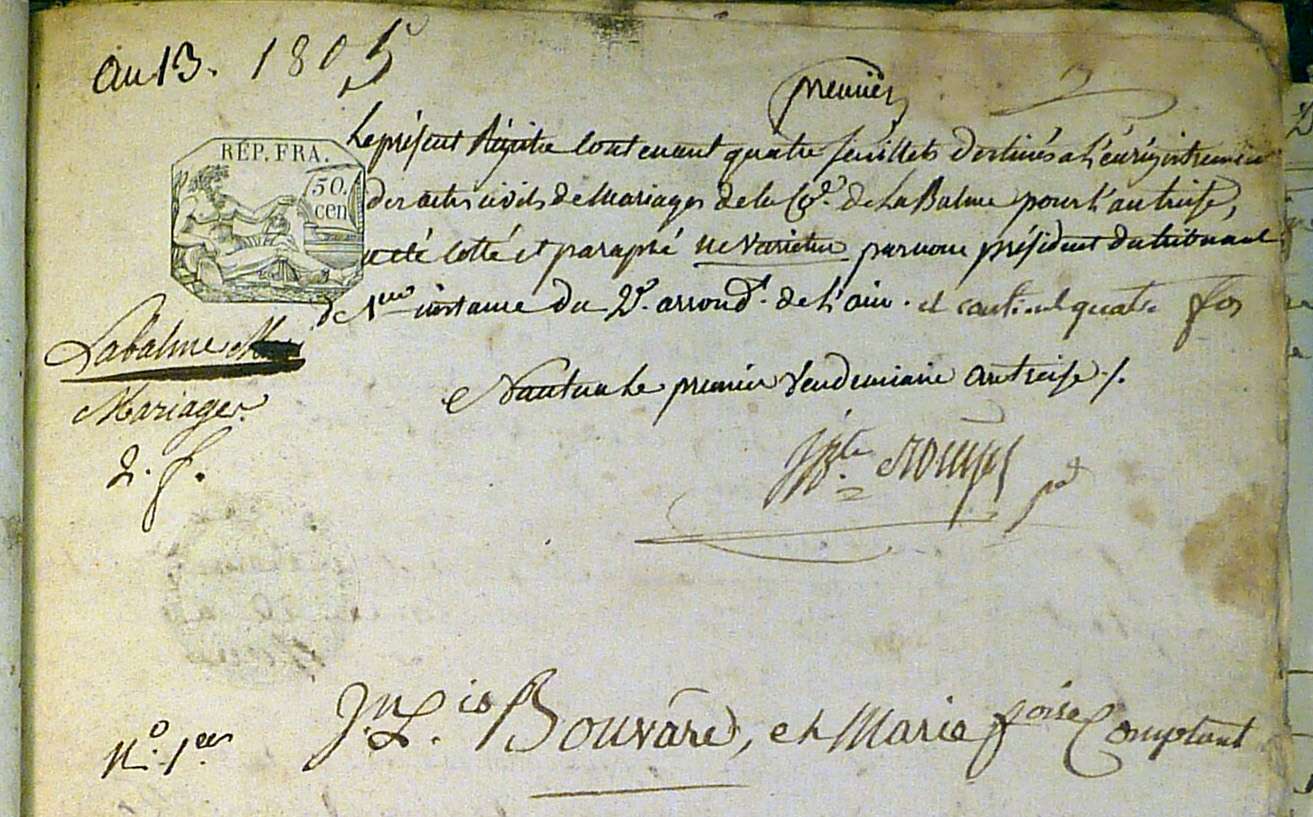 an 13. 1805
premier
RÉP. FRA.
50.
cen
Le présent Régitre contenant quatre feuillets destinés a L'enrégistrement
des actes civils de Mariages de la Cne. de La Balme pour l'an treise,
a eté cotté et paraphé ne varietur par nous président du tribunal
de 1ere instance du 2e. arrond.t de L'ain. et contient quatre fos
Labalme
Mariages
2. f.
Nantua Le premier Vendemiaire an treise ./.
No. 1er
Jn. Ls. Bouvard, et Marie foise Comptant